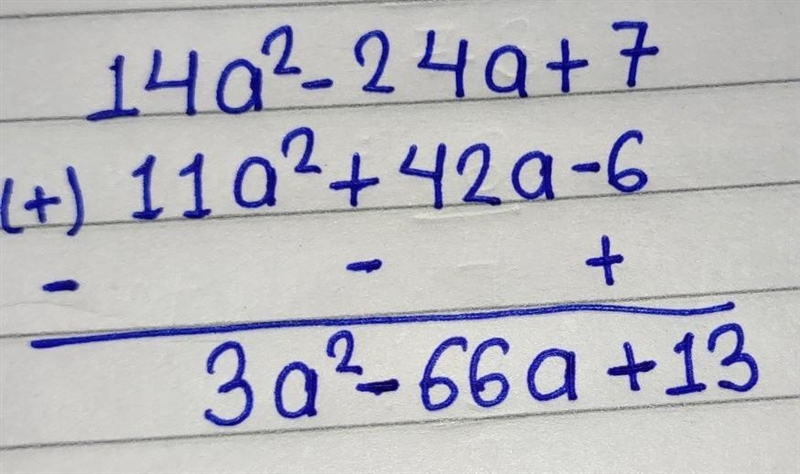 14a²-24a+7
(+) 11a²+42a-6
- - +
3a²-66a+13